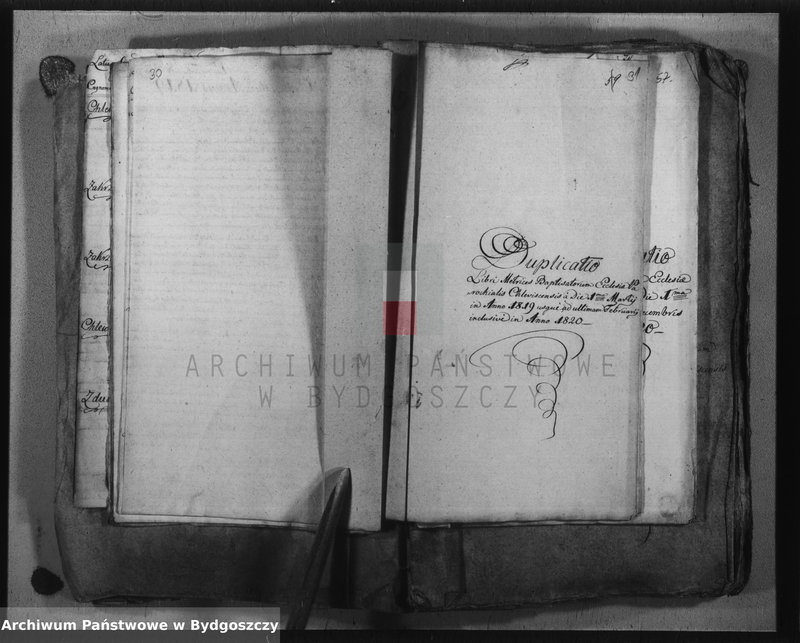 30
31
57.
Duplicatio
Libri Metrices Baptisatorum Ecclesia Pa
rochialis Chleviscensis à die 1ma Martij
in Anno 1819 usque ad ultimam Februarij
inclusive in Anno 1820
Ecclesia
die 1ma
cembris
Chlew
Zakrz
Zakrz
Chlew
Zdu
ARCHIWUM PAŃSTWOWE
W BYDGOSZCZY
Archiwum Państwowe w Bydgoszczy